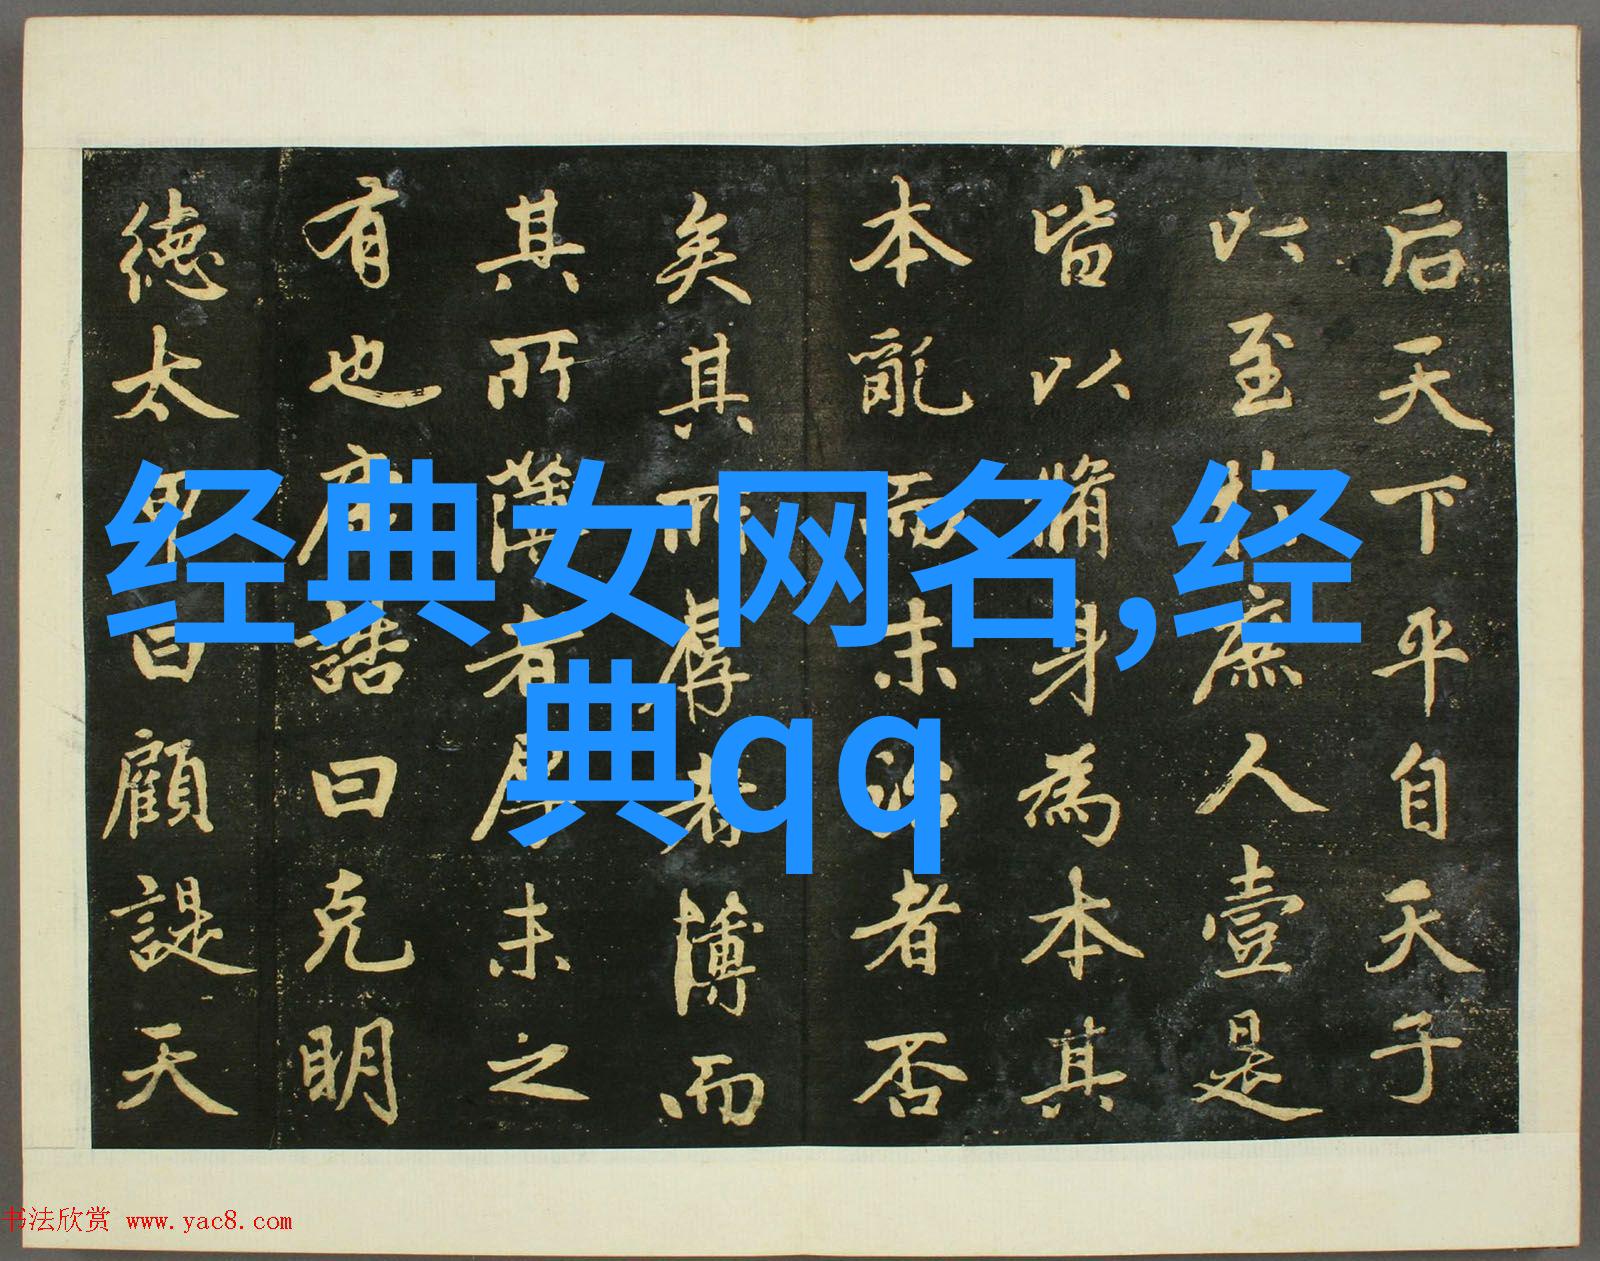 后天下平自天子
以至於庶人壹是
皆以脩身為本其
本亂而末治者否
矣其所厚者薄而
其所薄者厚未之
有也康誥曰克明
德太甲曰顧諟天
经典女网名,经
典qq
书法欣赏 www.yac8.com